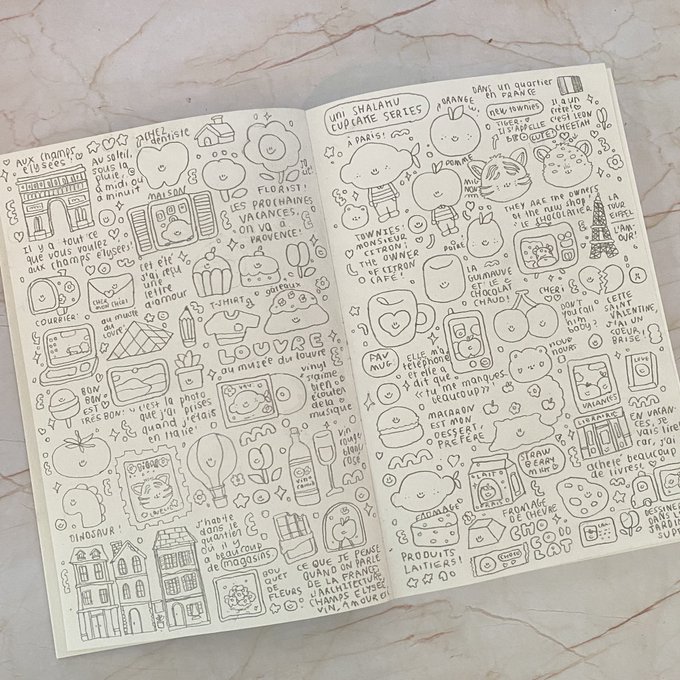 AUX CHAMPS
ELYSÉES
AU soleil,
sous la
pluie, à
midi ou
à minuit
CHEZ
dentiste
FLORIST!
Il y a tout ce
que vous voulez
aux champs elysées!
MAISON
LES PROCHAINES
VACANCES,
on va à
PROVENCE!
COURRIER
CHER,
MON CHÉRI
cet été
j'ai reçu
une
lettre
d'amour
gâteaux
T-SHIRT
au musée
du
LOUVRE
LOUVRE
au musée du louvre
BON
BON
EST
TRÈS BON!
c'est la photo
que j'ai prise
quand j'étais
en Italie
vinyl
j'aime
bien
écouter
de la
musique
vin
rouge
blanc
rosé
vin
DINOSAUR!
j'habite
dans le
quartier
où il y
a beaucoup
de magasins.
BOU
QUET
DE
FLEURS
CE QUE JE PENSE
QUAND ON PARLE
DE LA FRANCE,
L'ARCHITECTURE,
CHAMPS ELYSEE,
VIN, AMOUR
uni SHALAMU
CUPCAKE SERIES
ORANGE
DANS un quartier
en FRANCE
À PARIS!
new townies
TIGER
IL S'APPELLE
BIBO
CUTE!
Il a un
frère!
c'est LEON
CHEETAH
POMME
MIDI
NOW?
THEY ARE the owners
of the new shop
LE CHOCOLATIER
LA
TOUR
EIFFEL
L'AM-
OUR!
TOWNIES
MONSIEUR
CITRON!
THE OWNER
OF CITRON
CAFÉ!
POIRE
LA
GUIMAUVE
ET LE
CHOCOLAT
CHAUD!
CHERI
FAV
MUG
DON'T
you call
him
baby?
CETTE
SAINT
VALENTINE,
J'AI UN
COEUR
BRISE!
ELLE MA
TÉLÉPHONÉ
et elle a
dit que
«tu me manques
beaucoup»
nounours
VACANCES
LOVE
MACARON
EST MON
DESSERT
PRÉFÉRÉ
LIBRAIRIE
EN VACAN-
CES, je
vais lire
car, j'ai
acheté beaucoup
de livres.
STRAW
BERRY
MILK
LAIT
FRAIS
FROMAGE
FROMAGE
DE CHÈVRE
CHO
CO
LAT
PRODUITS
LAITIERS!
CHOCO
DESSINER
DANS LE
JARDIN